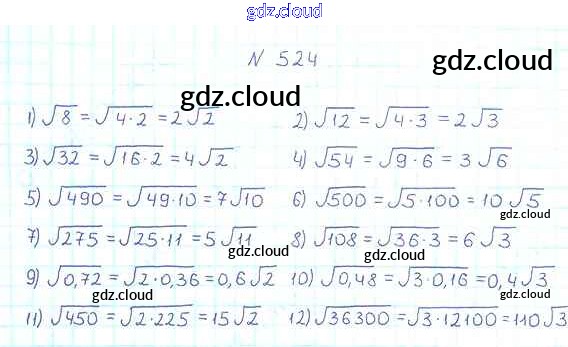 gdz.cloud
N 524
gdz.cloud
gdz.cloud
1) √8 = √4·2 = 2√2 2) √12 = √4·3 = 2√3
3) √32 = √16·2 = 4√2 4) √54 = √9·6 = 3√6
5) √490 = √49·10 = 7√10 6) √500 = √5·100 = 10√5
gdz.cloud
7) √275 = √25·11 = 5√11 8) √108 = √36·3 = 6√3
gdz.cloud gdz.cloud
9) √0,72 = √2·0,36 = 0,6√2 10) √0,48 = √3·0,16 = 0,4√3
gdz.cloud gdz.cloud
11) √450 = √2·225 = 15√2 12) √36300 = √3·12100 = 110√3